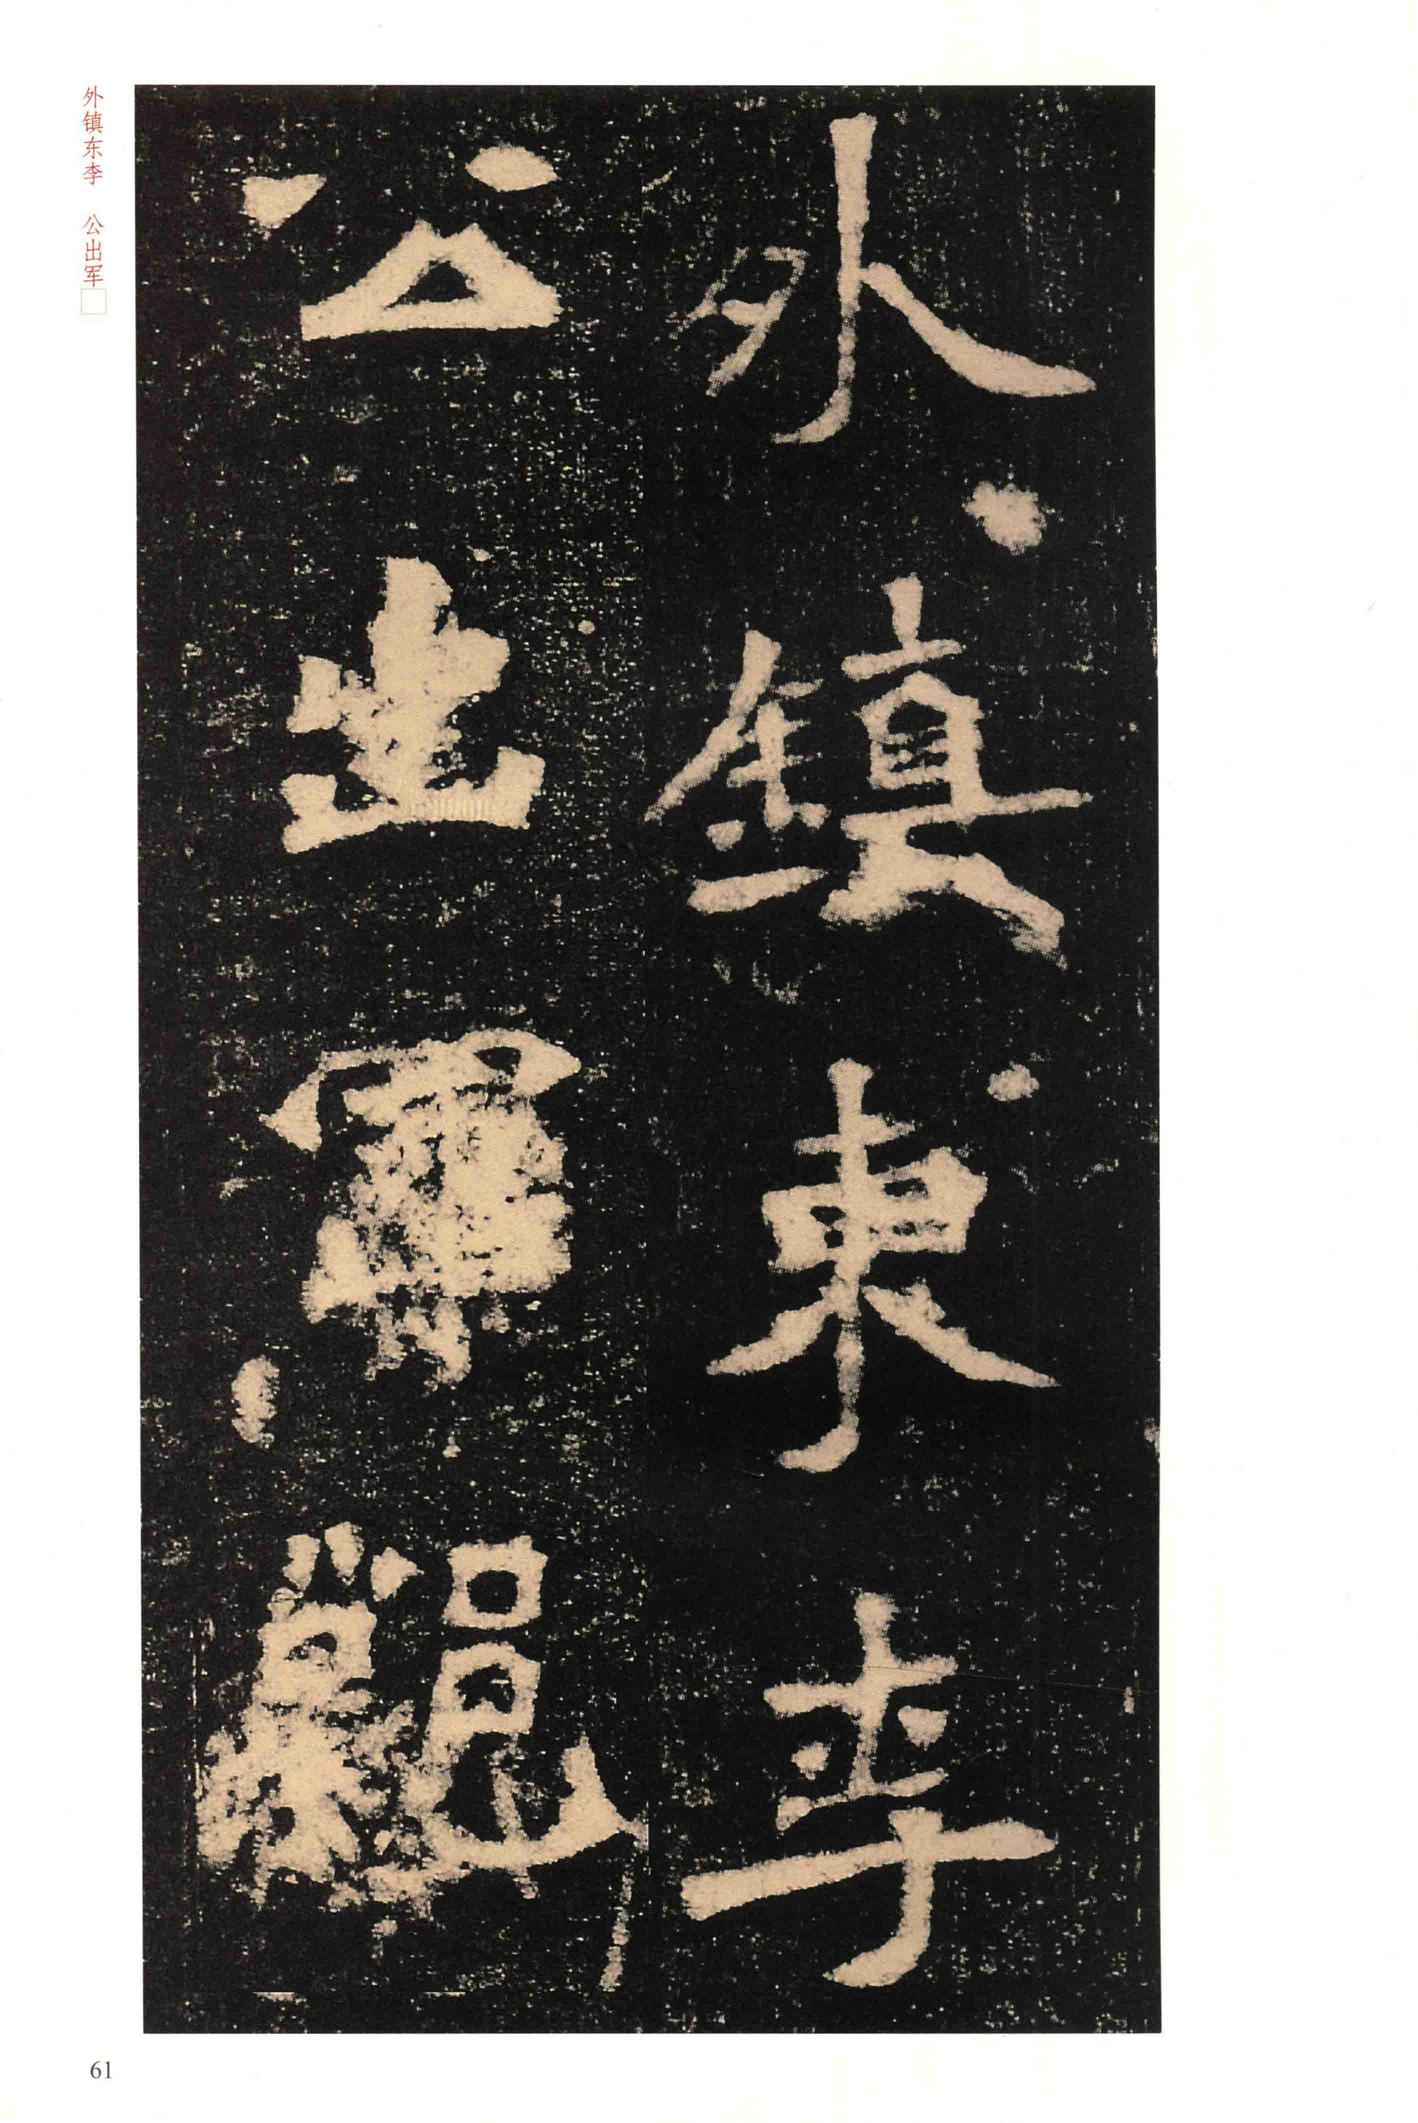 外鎮東李
公出軍
外镇东李 公出军□
61